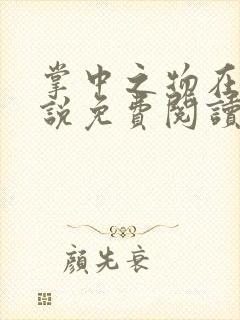 掌中之物在
說免費閱讀
顏先衰